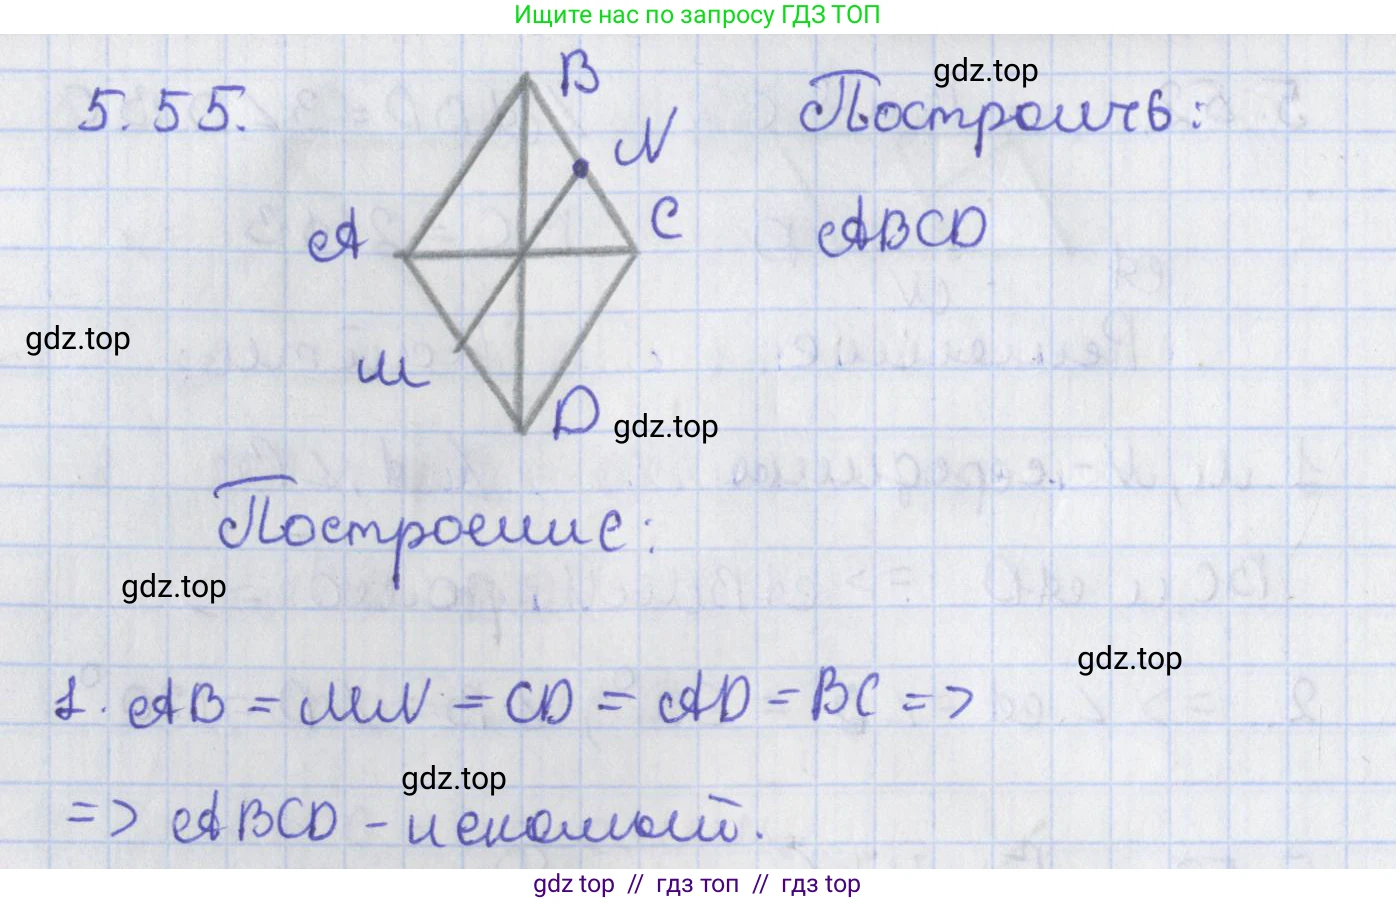 Ищите нас по запросу ГДЗ ТОП
5.55.
B
N
A
C
M
D
Построить:
ABCD
gdz.top
gdz.top
gdz.top
Построение:
gdz.top
gdz.top
1. AB = MN = CD = AD = BC =>
gdz.top
=> ABCD - искомый.
gdz top // гдз топ // гдз top